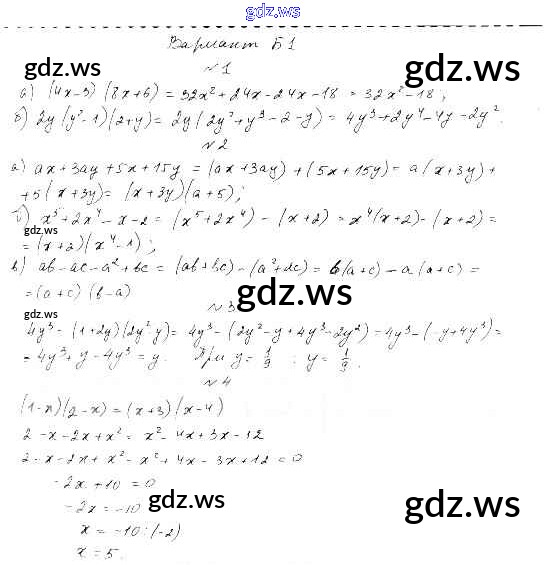 gdz.ws
Вариант Б1
gdz.ws gdz.ws
№1
а) (4x-3)(8x+6) = 32x²+24x-24x-18 = 32x²-18;
б) 2y(y²-1)(2+y) = 2y(2y²+y³-2-y) = 4y³+2y⁴-4y-2y².
№2
а) ax+3ay+5x+15y = (ax+3ay)+(5x+15y) = a(x+3y)+
+5(x+3y) = (x+3y)(a+5);
б) x⁵+2x⁴-x-2 = (x⁵+2x⁴)-(x+2) = x⁴(x+2)-(x+2) =
gdz.ws
= (x+2)(x⁴-1);
в) ab-ac-a²+bc = (ab+bc)-(a²+ac) = b(a+c)-a(a+c) =
gdz.ws gdz.ws
= (a+c)(b-a)
№3
gdz.ws
4y³-(1+2y)(2y²-y) = 4y³-(2y²-y+4y³-2y²) = 4y³-(-y+4y³) =
= 4y³+y-4y³ = y. При y = 1/9 : y = 1/9.
№4
(1-x)(2-x) = (x+3)(x-4)
2-x-2x+x² = x²-4x+3x-12
2-x-2x+x²-x²+4x-3x+12 = 0
-2x+10 = 0
gdz.ws gdz.ws
-2x = -10
x = -10:(-2)
x = 5.